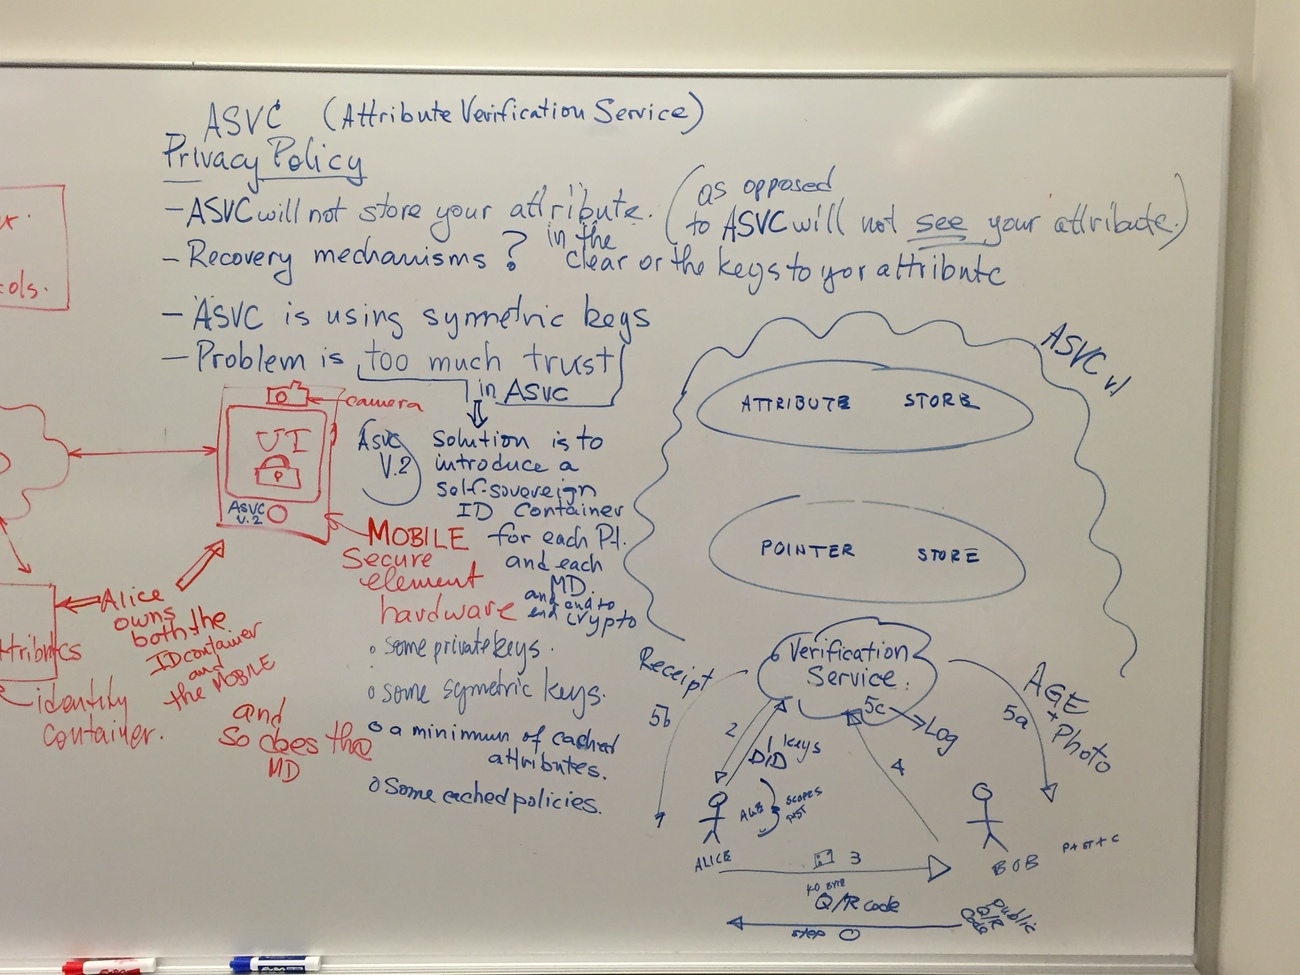 ASVC (Attribute Verification Service)
Privacy Policy
- ASVC will not store your attribute. (as opposed
to ASVC will not see your attribute.)
in the
clear or the keys to yor attribute
- Recovery mechanisms ?
- ASVC is using symetric keys
- Problem is too much trust
in ASVC
r.
cols.
camera
UI
ASVC
V.2
ASVC
V.2
Solution is to
introduce a
self-sovereign
ID Container
for each P.I.
and each
MD.
and end to
end crypto
MOBILE
Secure
element
hardware
o some private keys.
o some symetric keys.
o a minimum of cached
attributes.
o Some cached policies.
Alice
owns
both the
ID container
and
the MOBILE
and
so does the
MD
identity
container.
ASVC v1
ATTRIBUTE STORE
POINTER STORE
Verification
Service
Receipt
5b
2
1
keys
DID
5c
Log
4
AGE
+ Photo
5a
SCOPES
ALICE
BOB
3
40 BYTE
Q/R code
step 0
Public
Q/R
Code